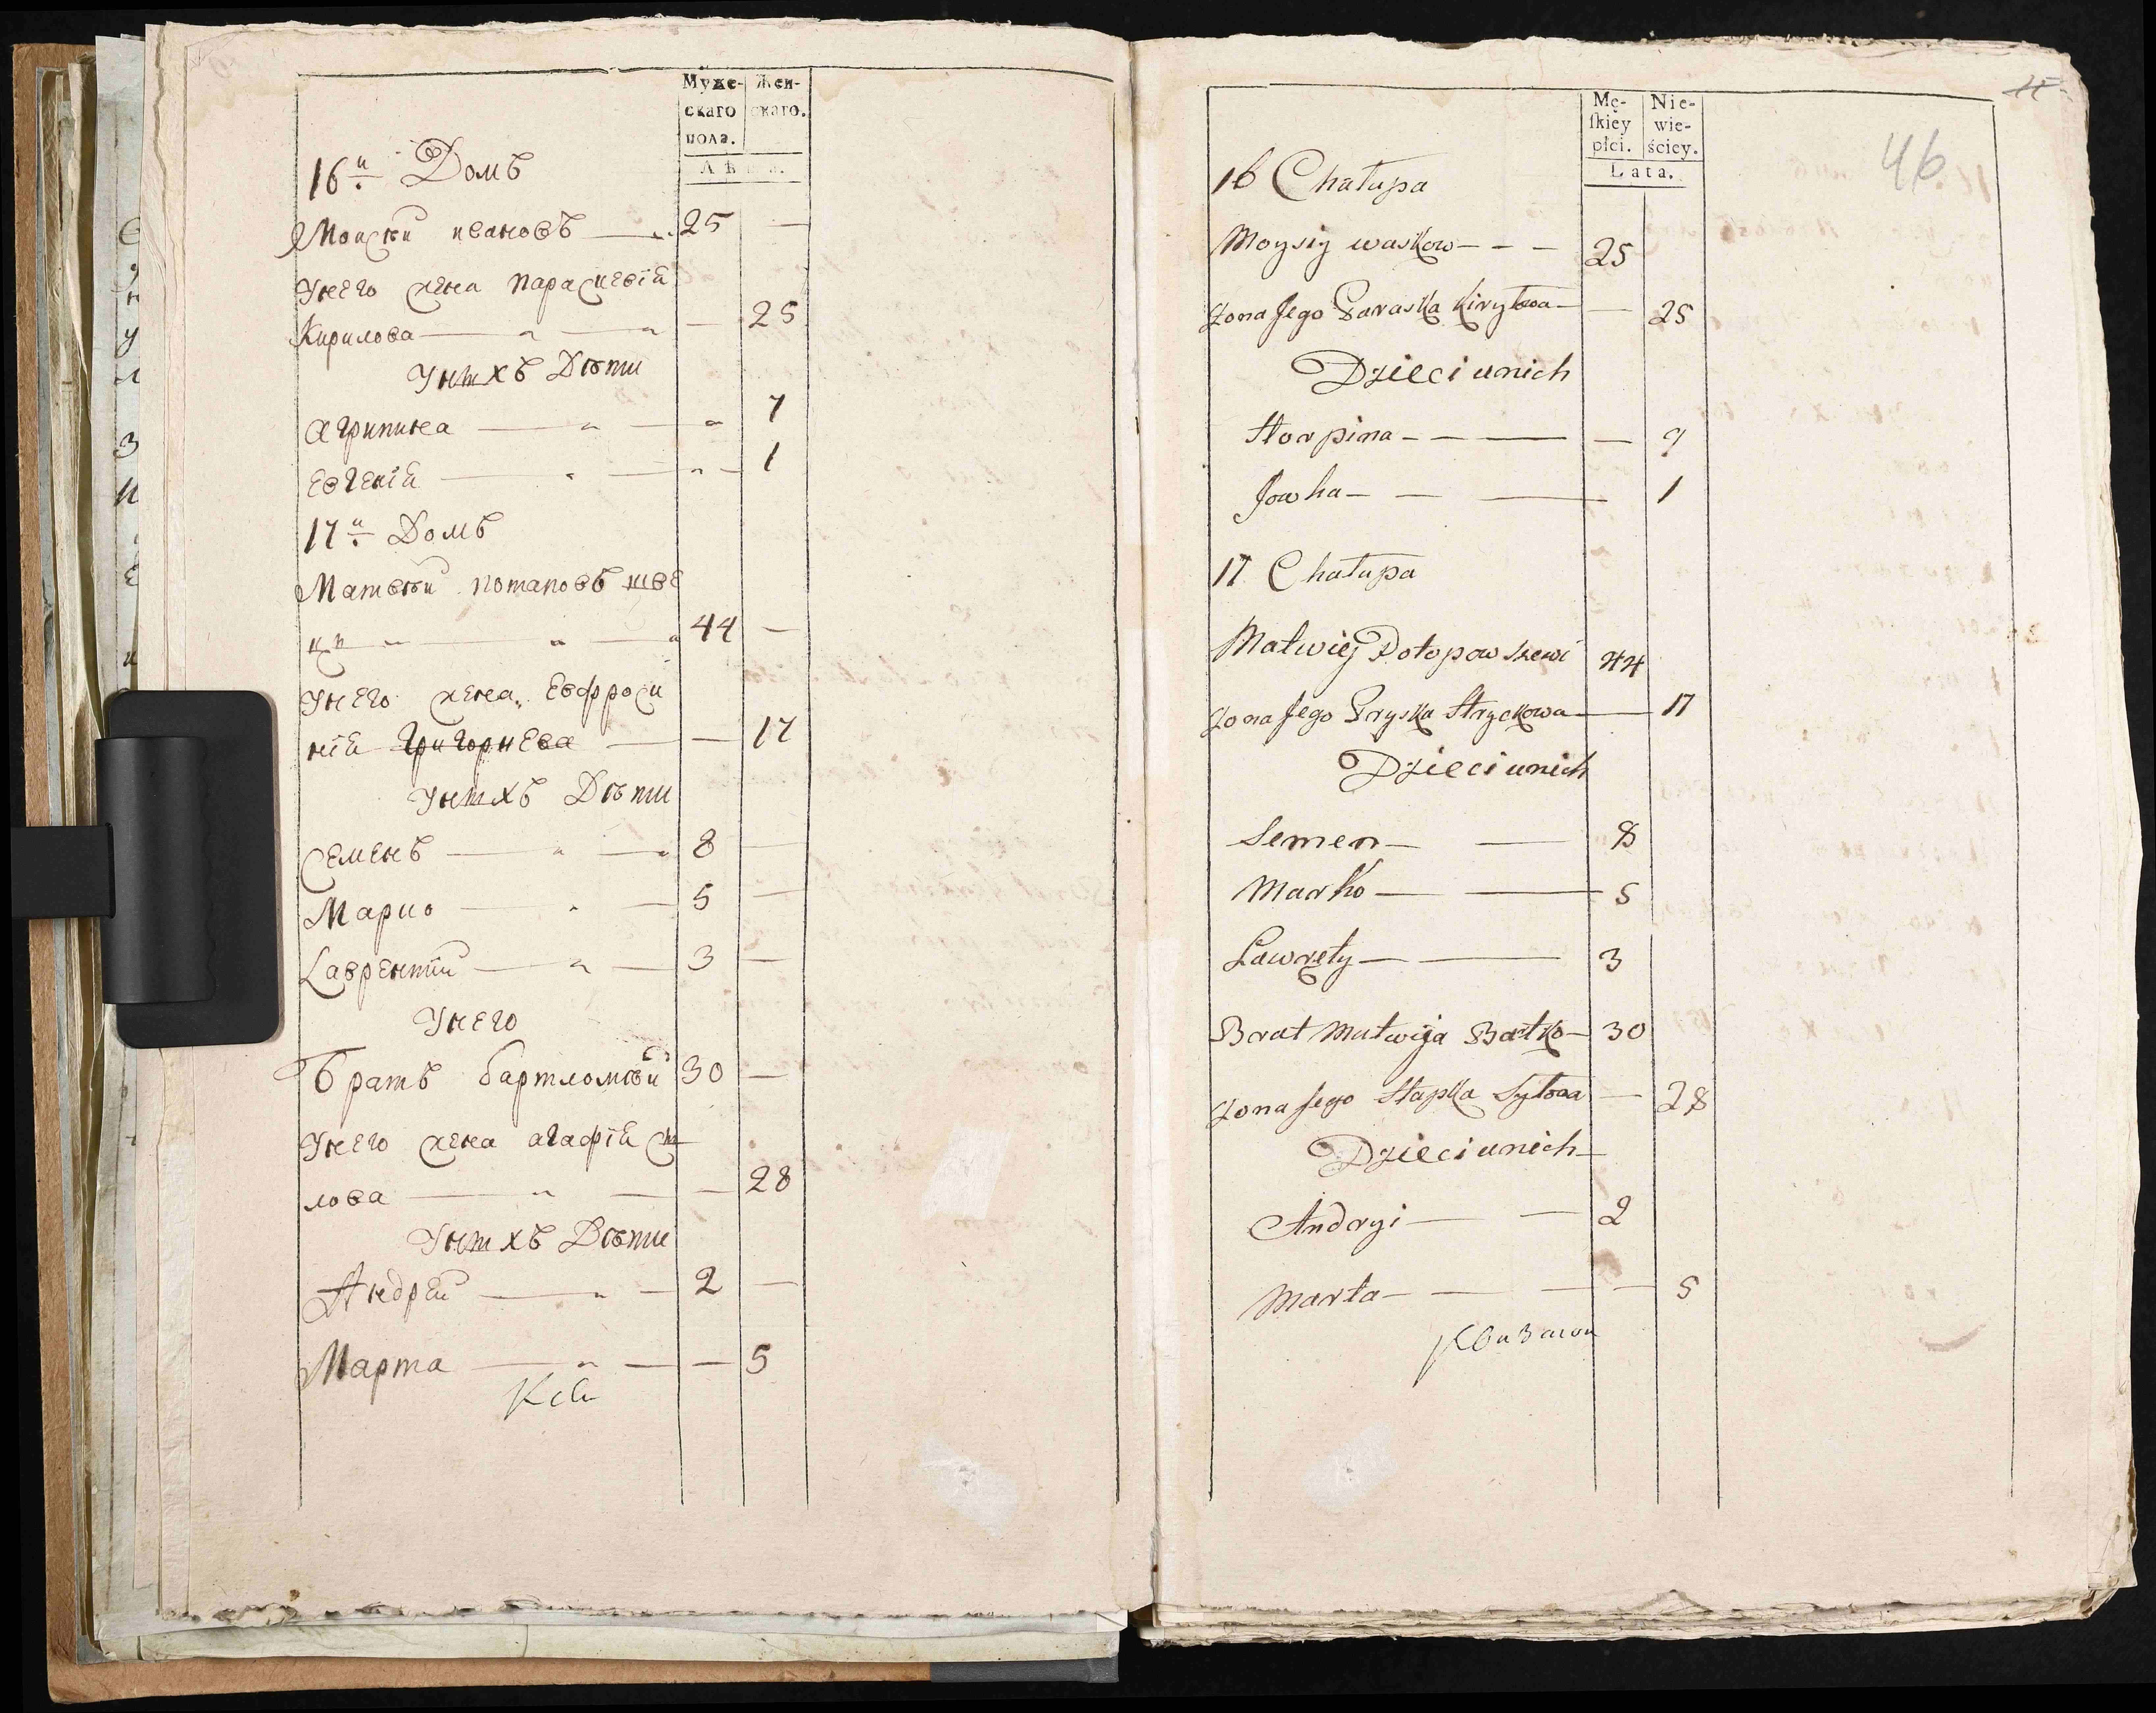 Муже-
скаго
пола.
Жен-
скаго.
Лѣта.
16й Домъ
Моисѣй ивановъ — 25 —
Унего жена параскевія
Кирилова — — 25
Унихъ Дѣти
агрипина — — 7
евгенія — — 1
17й Домъ
Матвѣй потаповъ шве
цъ — 44 —
Унего жена Евфроси
нія Григорнева — — 17
Унихъ Дѣти
Семенъ — 8 —
Марко — 5 —
Лаврентій — 3 —
Унего
братъ бартломѣй 30 —
Унего жена агафія
лова — — 28
Унихъ Дѣти
Андрей — 2 —
Марта — — 5
Męs-
skiey
płci.
Nie-
wie-
ściey.
Lata.
46
16 Chałupa
Moysiy waskow — — — 25
Zona Jego Paraska Kiryłowa — — 25
Dzieci unich
Horpina — — — — 7
Jowha — — — 1
17 Chałupa
Matwiej Potopow szewc 44
Zona Jego Pryska Hryckowa — 17
Dzieci unich
Semen — — 8
Marko — — 5
Ławręty — — 3
Brat Matwija Batko — 30
Zona Jego Hapka Syłowa — 28
Dzieci unich
Andryi — — 2
Marta — — — — 5